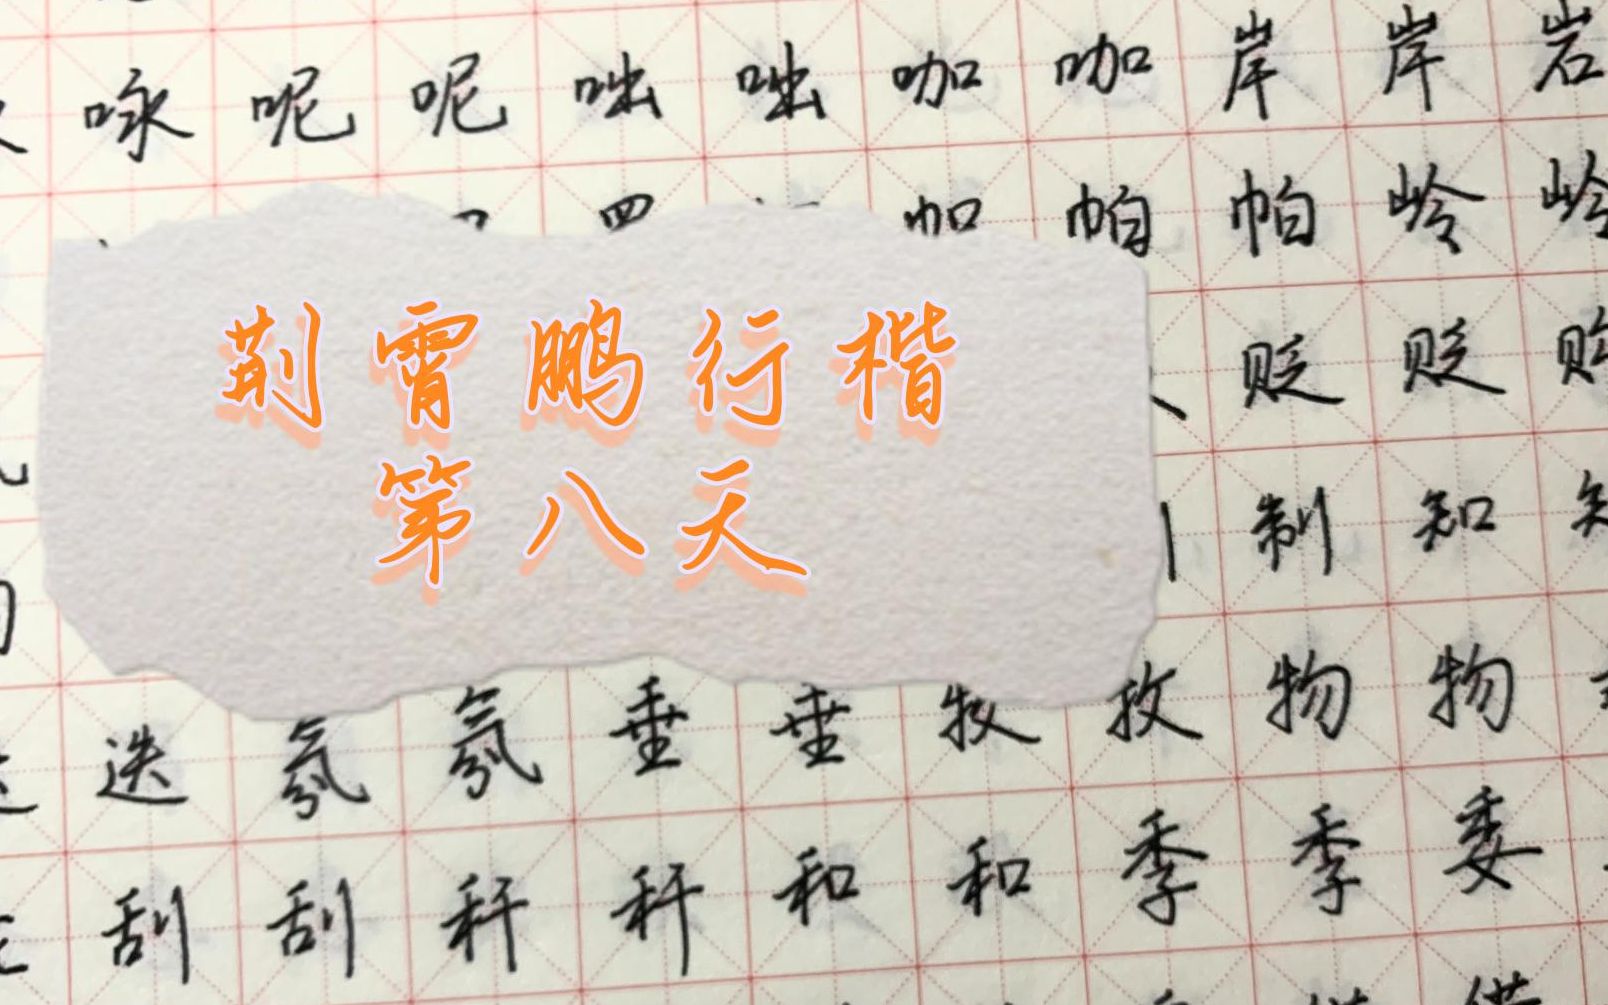 咏 呢 呢 咄 咄 咖 咖 岸 岸 岩
帕 帕 岭 岭
荆霄鹏行楷
贬 贬
制 知
第八天
迭 氛 氛 垂 垂 牧 牧 物 物
刮 刮 秆 秆 和 和 季 季 委